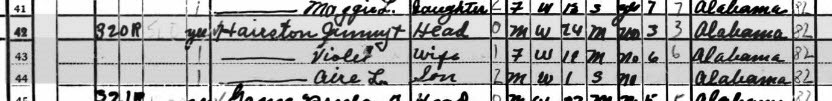 41 1 —— Maggie L. daughter 2 F W 12 S yes 7 7 Alabama 82
42 320R yes Hairston Jimmy + Head 0 M W 24 M no 3 3 Alabama 82
43 1 —— Violet Wife 1 F W 19 M no 6 6 Alabama 82
44 1 —— Aire L. Son 2 M W 1 S no Alabama 82
321R Head